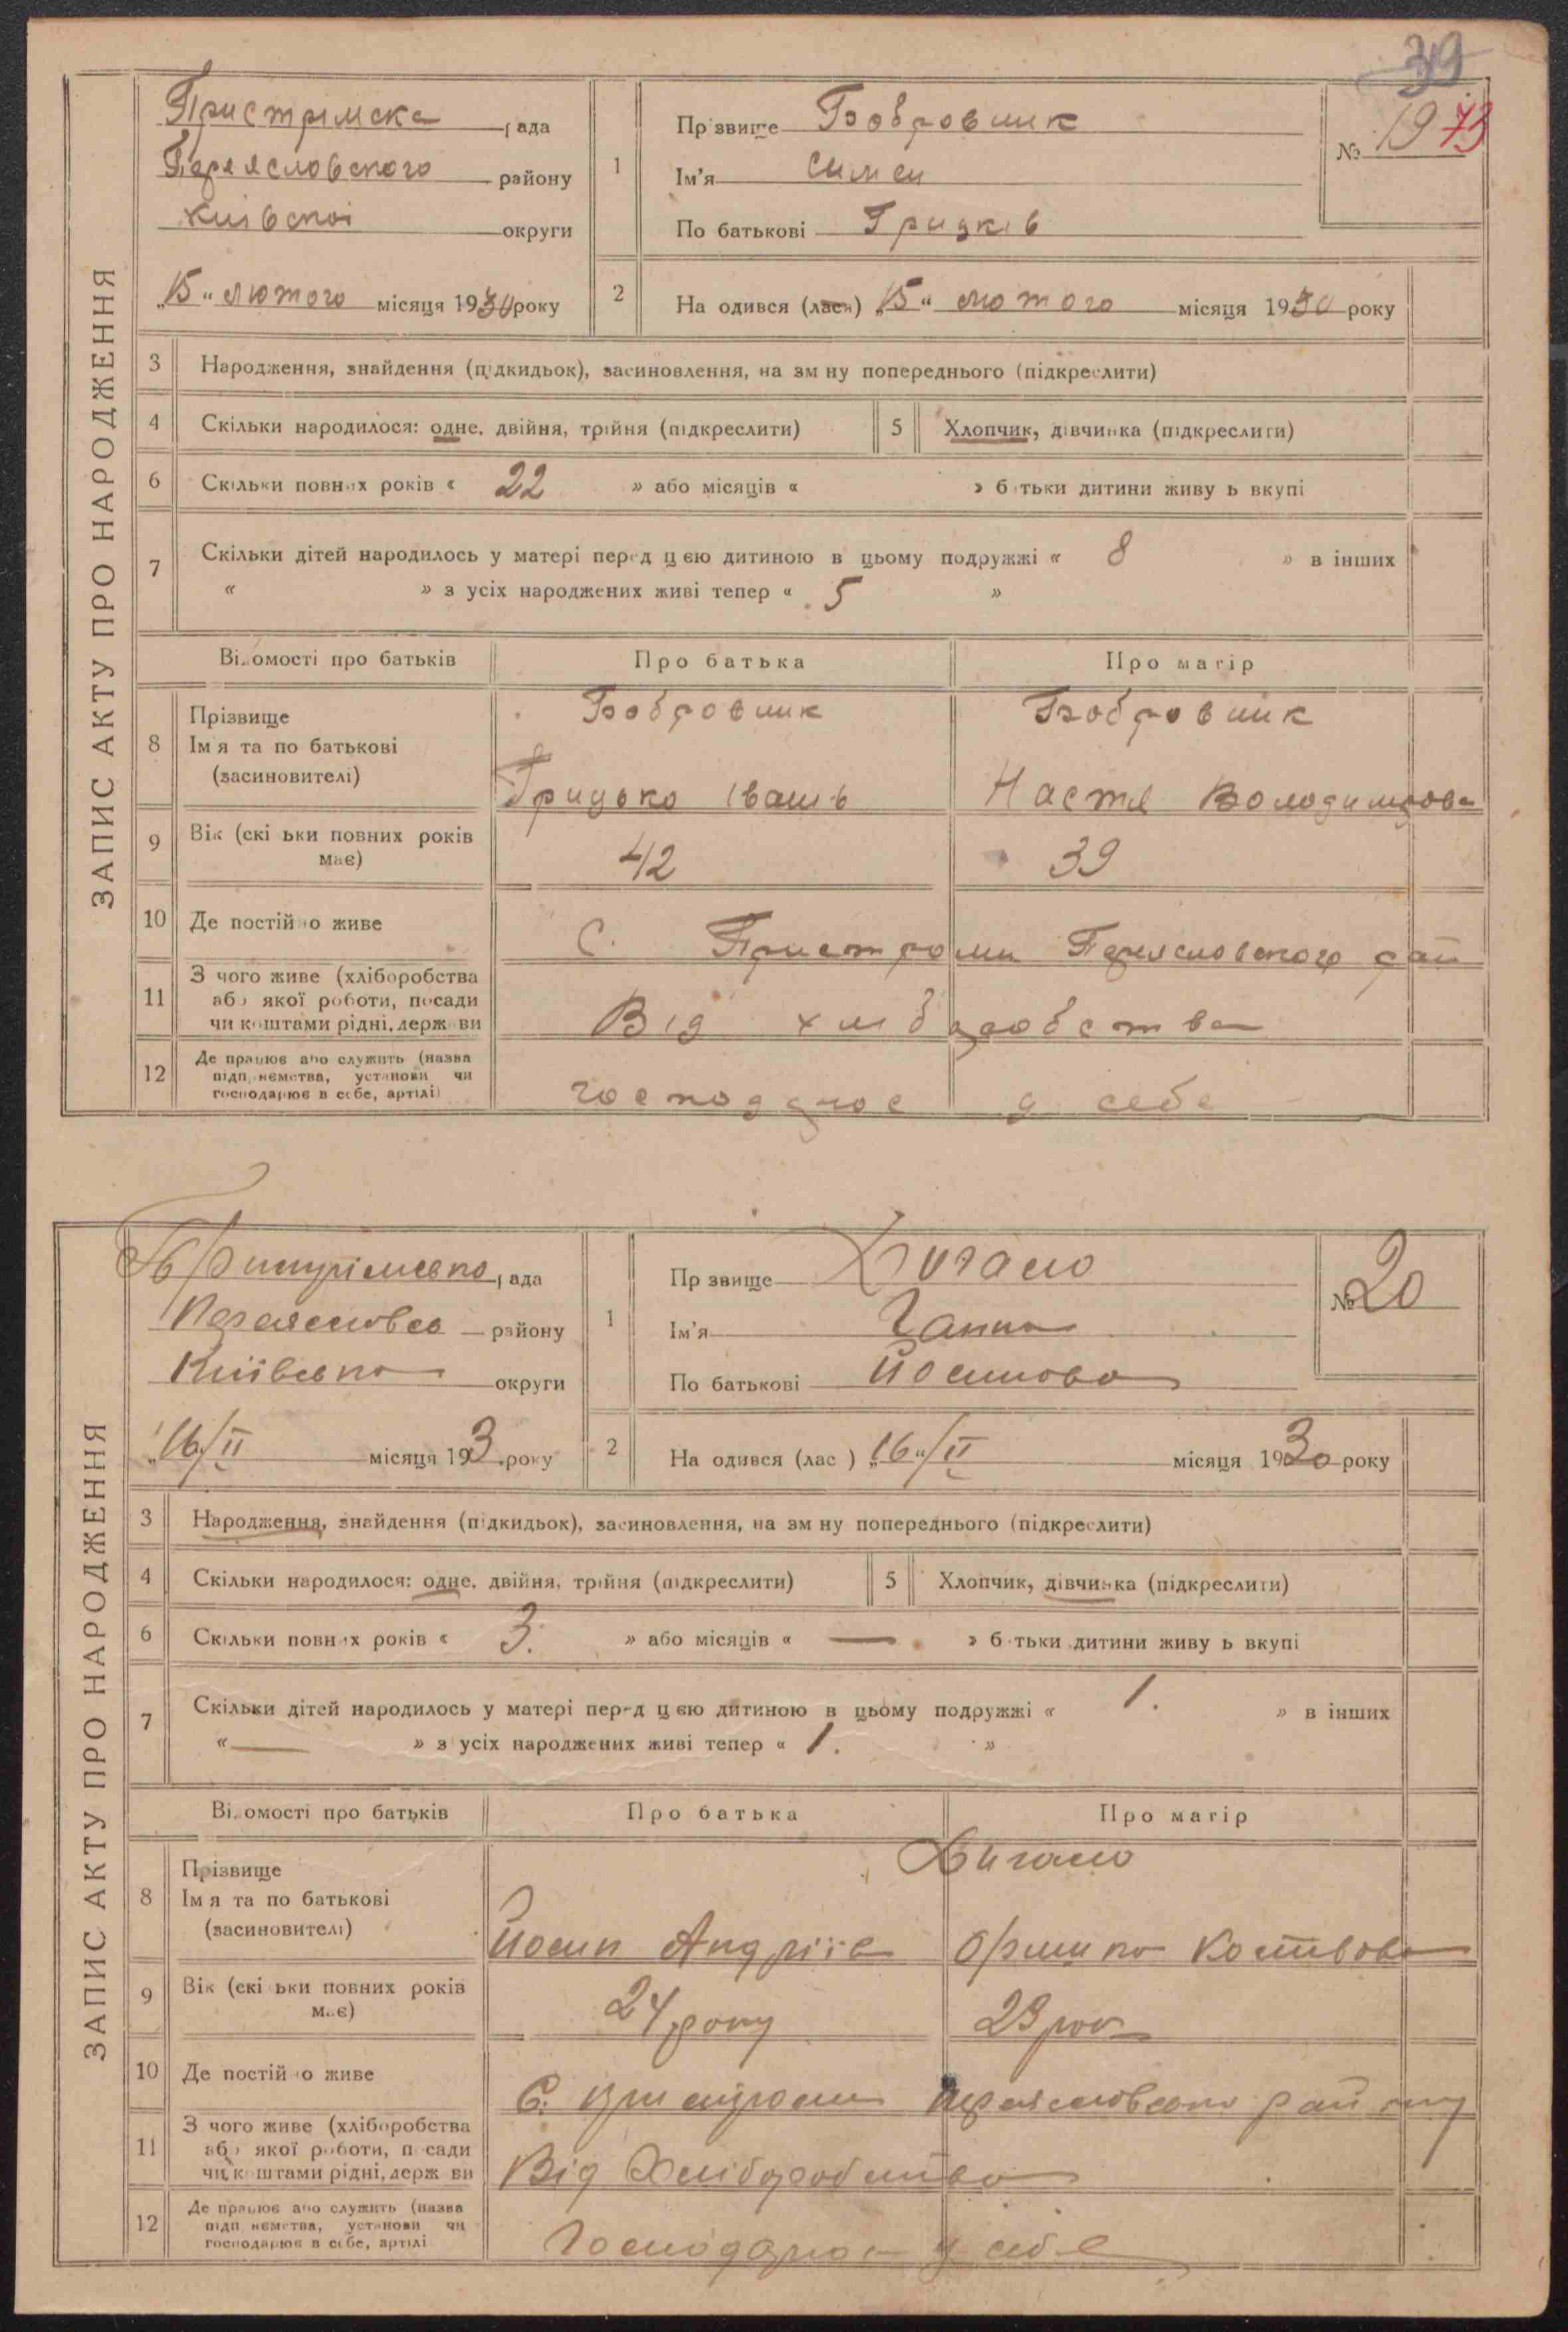 39
ЗАПИС АКТУ ПРО НАРОДЖЕННЯ
Пристрімска рада
Переясловского району
Київскої округи
„15“ лютого місяця 1930 року
1 Прізвище Бобровник
Ім'я Симен
По батькові Грицків
№ 19 73
2 На одився (лася) „15“ лютого місяця 1930 року
3 Народження, знайдення (підкидьок), засиновлення, на зм ну попереднього (підкреслити)
4 Скільки народилося: одне, двійня, трійня (підкреслити) 5 Хлопчик, дівчинка (підкреслити)
6 Скільки повних років « 22 » або місяців « » б тьки дитини живу ь вкупі
7 Скільки дітей народилось у матері перед цією дитиною в цьому подружжі « 8 » в інших
« » з усіх народжених живі тепер « 5 »
Відомості про батьків Про батька Про матір
8 Прізвище
Ім я та по батькові
(засиновителі)
Бобровник Бобровник
Грицько Іванів Настя Володимирова
9 Вік (скі ьки повних років має) 42 39
10 Де постійно живе С. Пристроми Переясловского рай
11 З чого живе (хліборобства
або якої роботи, посади
чи коштами рідні, держ ви
Від хліборобства
12 Де працює або служить (назва
підпр ємства, установи чи
господарює в себе, артілі)
господарює у себе
ЗАПИС АКТУ ПРО НАРОДЖЕННЯ
рада
району
округи
„16/II місяця 193 року
1 Пр звище
Ім'я Ганна
По батькові Йосипова
№ 20
2 На одився (лас ) „16“/II місяця 1930 року
3 Народження, знайдення (підкидьок), засиновлення, на зм ну попереднього (підкреслити)
4 Скільки народилося: одне, двійня, трійня (підкреслити) 5 Хлопчик, дівчинка (підкреслити)
6 Скільки повних років « 3. » або місяців « — » б тьки дитини живу ь вкупі
7 Скільки дітей народилось у матері перед цією дитиною в цьому подружжі « 1. » в інших
« — » з усіх народжених живі тепер « 1. »
Відомості про батьків Про батька Про матір
8 Прізвище
Ім я та по батькові
(засиновителі)
Йосип Андріїв Костєва
9 Вік (скі ьки повних років має) 24 року 23 рок
10 Де постійно живе С. Пристроми Переясловского району
11 З чого живе (хліборобства
або якої роботи, посади
чи коштами рідні, держ ви
Від Хліборобства
12 Де працює або служить (назва
підп ємства, установи чи
господарює в себе, артілі
Господарює у себе